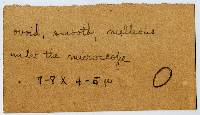 ovoid, smooth, melleous
under the microscope
7-8 x 4-5 µ